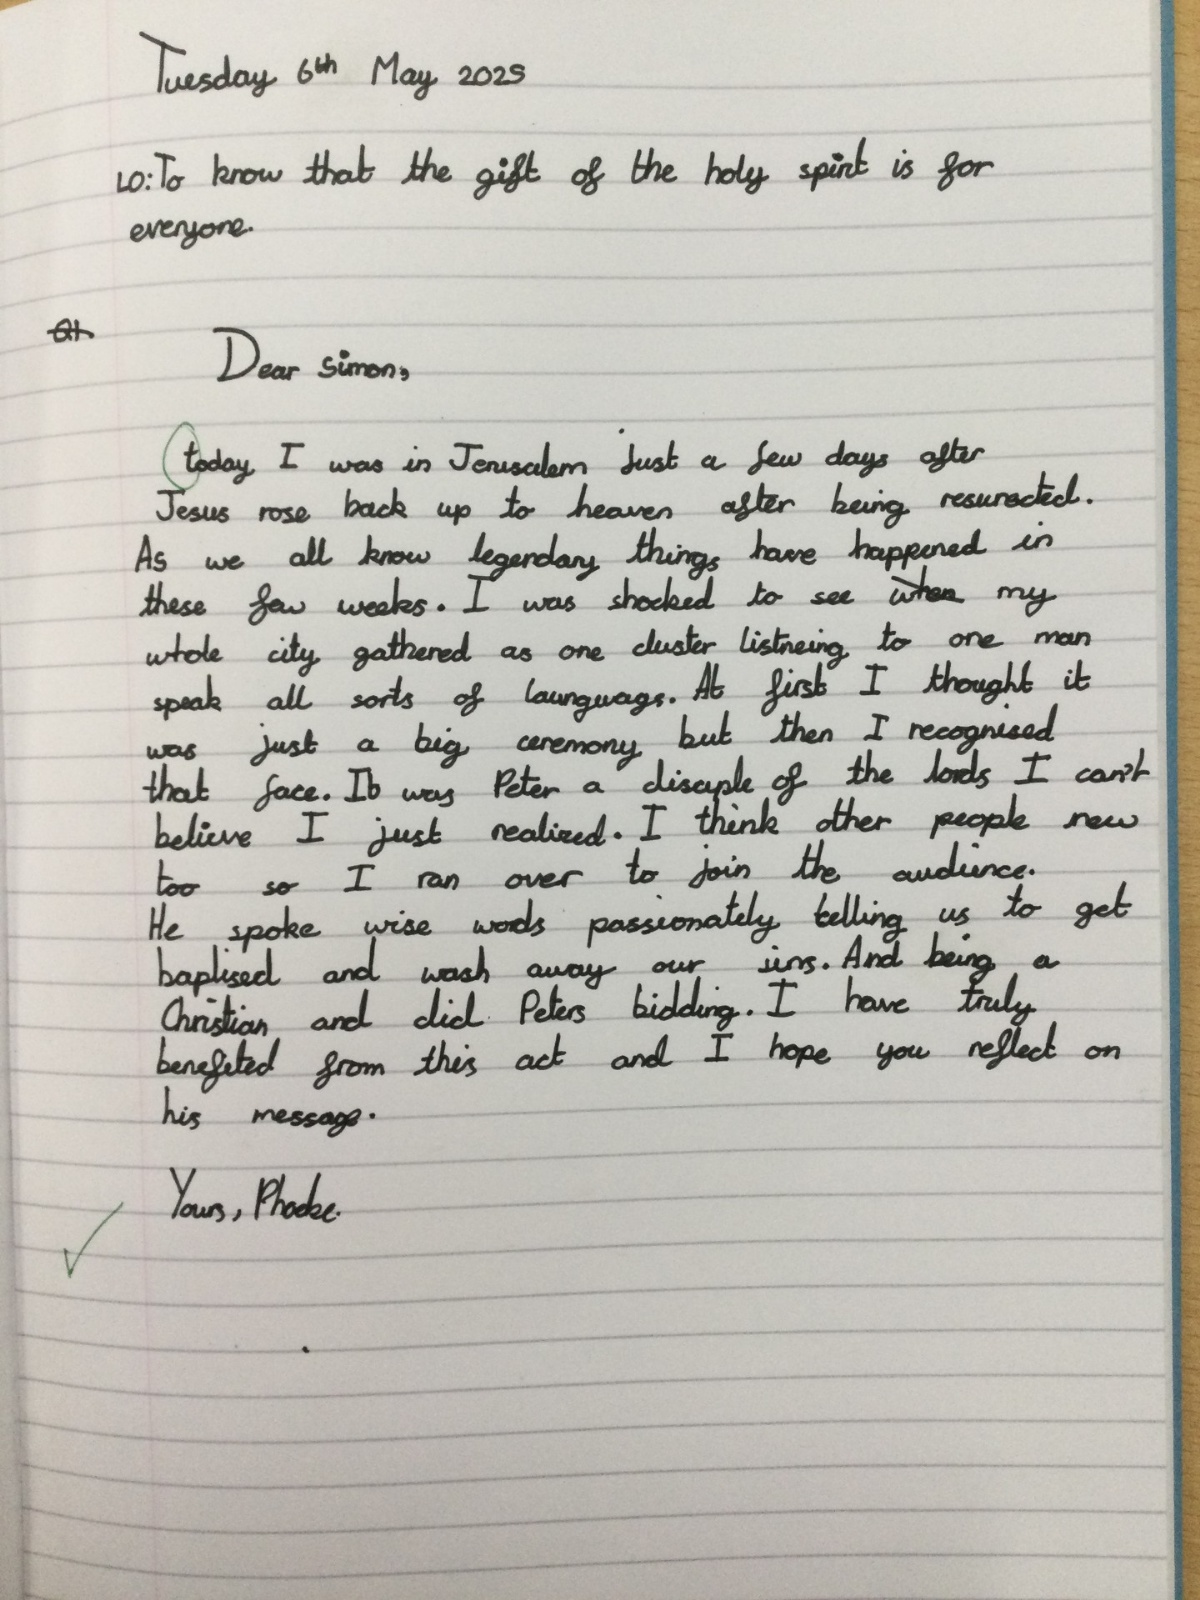 Tuesday 6th May 2025
LO: To know that the gift of the holy spirit is for
everyone.
Q1
Dear Simon,
today I was in Jerusalem just a few days after
Jesus rose back up to heaven after being resurected.
As we all know legendary things have happened in
these few weeks. I was shocked to see when my
whole city gathered as one cluster listneing to one man
speak all sorts of launguags. At first I thought it
was just a big ceremony but then I recognised
that face. It was Peter a disciple of the lords I can't
believe I just realized. I think other people new
too so I ran over to join the audience.
He spoke wise words passionately telling us to get
baptised and wash away our sins. And being a
Christian and did Peters bidding. I have truly
benefited from this act and I hope you reflect on
his message.
Yours, Phoebe.